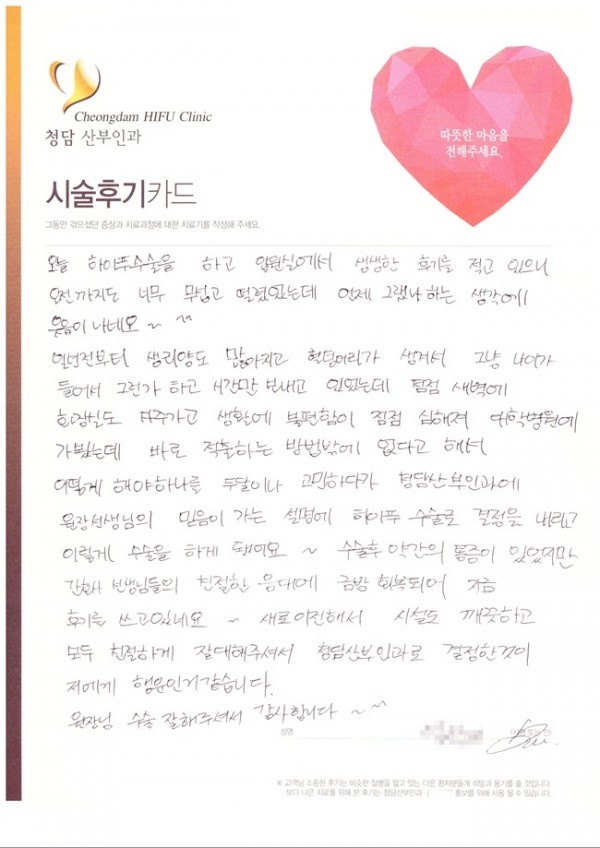 Cheongdam HIFU Clinic
청담 산부인과
따뜻한 마음을
전해주세요.
시술후기카드
그동안 겪으셨던 증상과 치료과정에 대한 치료기를 작성해 주세요.
오늘 하이푸수술을 하고 입원실에서 생생한 후기를 적고 있으니
오전까지도 너무 무섭고 떨렸었는데 언제 그랬나 하는 생각에
웃음이 나네요~ ^^
일년전부터 생리양도 많아지고 혈덩어리가 생겨서 그냥 나이가
들어서 그런가 하고 시간만 보내고 있었는데 점점 새벽에
화장실도 자주가고 생활에 불편함이 점점 심해져 대학병원에
가봤는데 바로 적출하는 방법밖에 없다고 해서
어떻게 해야하나를 두달이나 고민하다가 청담산부인과에
원장선생님의 믿음이 가는 설명에 하이푸 수술로 결정을 내리고
이렇게 수술을 하게 됐어요~ 수술후 약간의 통증이 있었지만
간호사 선생님들의 친절한 응대에 금방 회복되어 지금
후기를 쓰고있네요~ 새로이전해서 시설도 깨끗하고
모두 친절하게 잘대해주셔서 청담산부인과로 결정한것이
저에게 행운인거같습니다.
원장님 수술 잘해주셔서 감사합니다~^^
성명
※ 고객님 소중한 후기는 비슷한 질병을 앓고 있는 다른 환자분들게 희망과 용기를 줄 것입니다.
보다 나은 치료를 위해 본 후기는 청담산부인과 · 홍보를 위해 사용 될 수 있습니다.